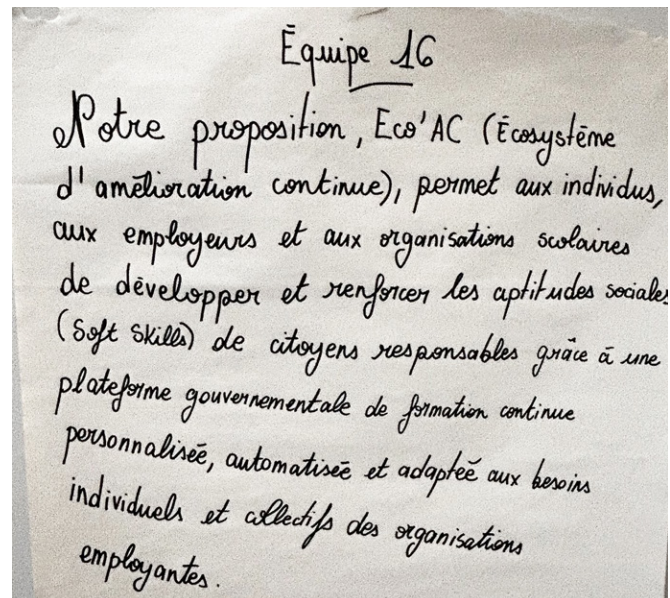 Équipe 16
Notre proposition, Eco'AC (Écosystème
d'amélioration continue), permet aux individus,
aux employeurs et aux organisations scolaires
de développer et renforcer les aptitudes sociales
(Soft Skills) de citoyens responsables grâce à une
plateforme gouvernementale de formation continue
personnalisée, automatisée et adaptée aux besoins
individuels et collectifs des organisations
employantes.